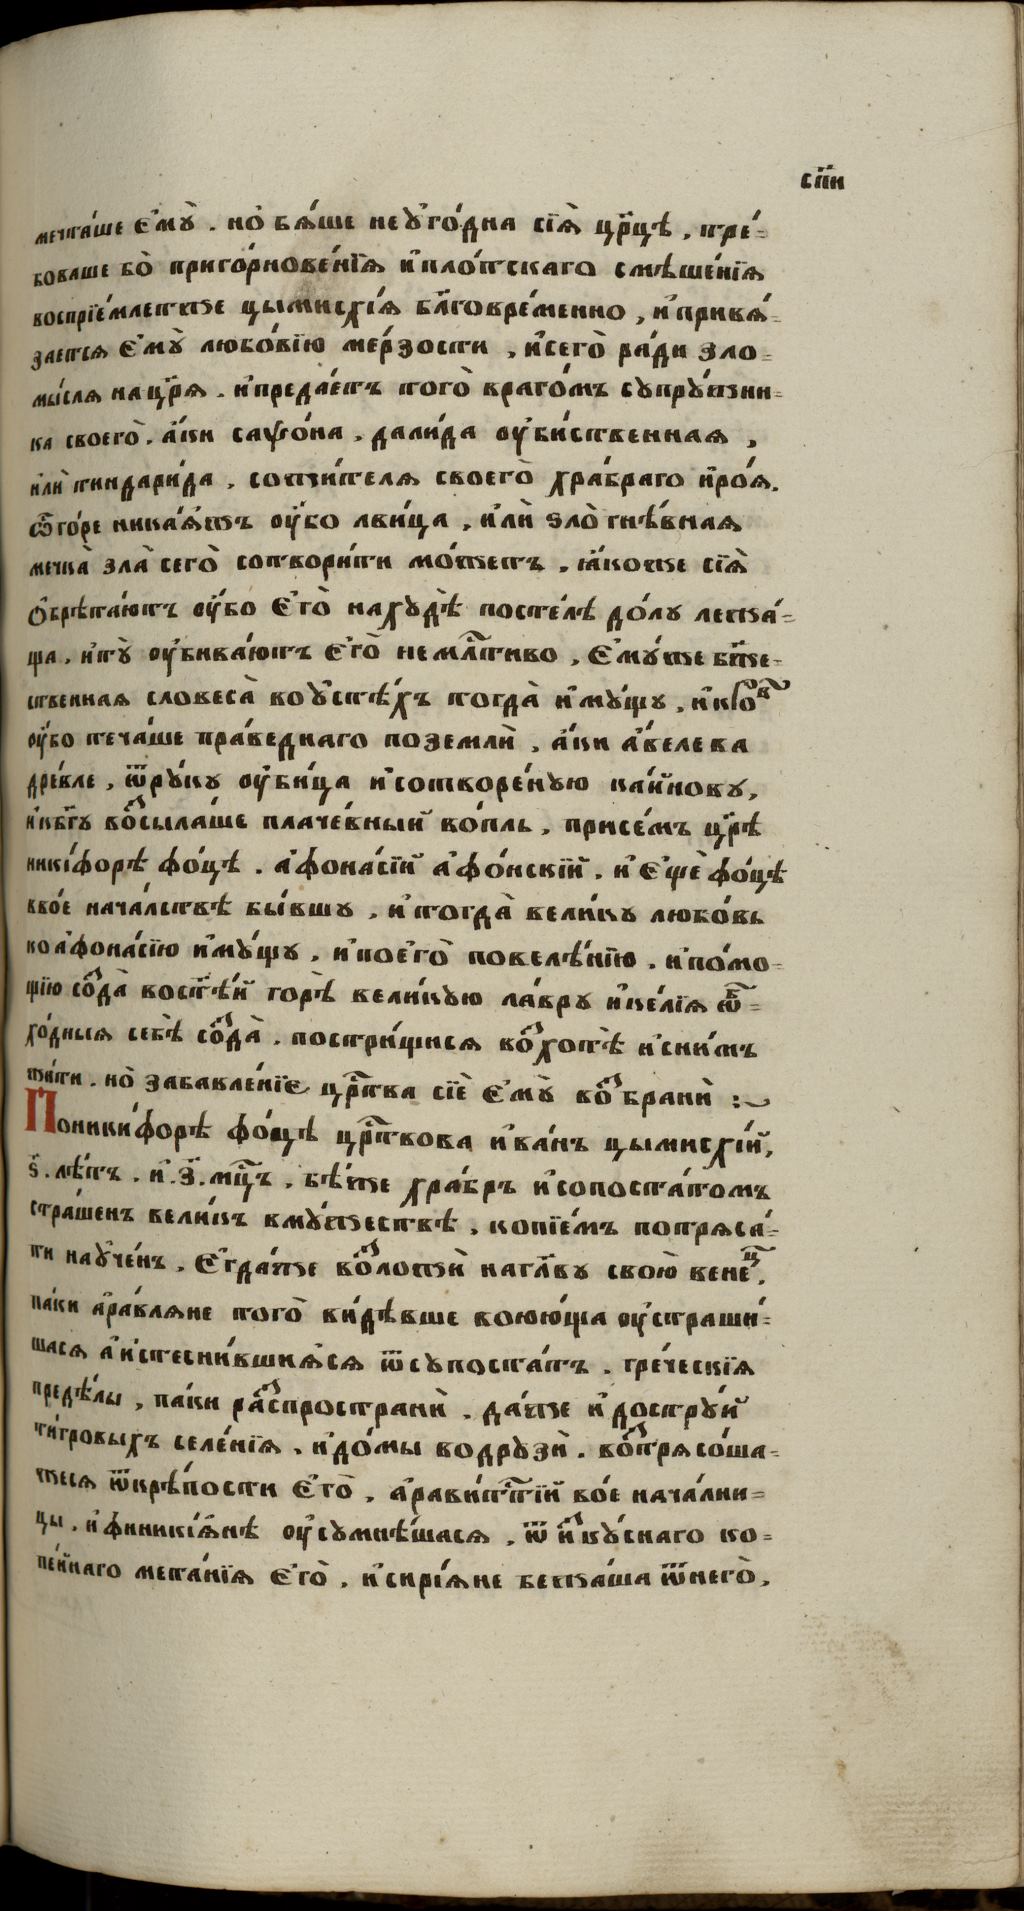 сп҃и
мечта́ше є҆мꙋ̀ . но̀ бѧ́ше неꙋ҆го́дна сїѧ̀ цр҃цѣ , тре́=
боваше бо̀ приго́рновенїѧ и҆пло́тскаго смѣше́нїѧ
воспрїе́млетже цымисхі́ѧ бл҃говре́менно , и҆привѧ́=
зается є҆мꙋ̀ любо́вїю ме́рзости , и҆сего̀ ра́ди зло=
мы́слѧ нацр҃ѧ . и҆преда́етъ того̀ враго́мъ сꙋпрꙋ́жни=
ка своего̀ . а҆́ки саѱо́на , дали́да оу҆бі́иственнаѧ ,
и҆лѝ тиндари́да , сожи́телѧ своего̀ хра́браго и҆ро́ѧ .
ѿго́ре никаѧ́жъ оу҆́бо лви́ца , и҆лѝ ѕло̀ гнѣ́внаѧ
ме́чка̀ зла̀ сего̀ сотвори́ти мо́жетъ . ꙗ҆́коже сїѧ̀
Ѻ҆брѣта́ютъ оу҆́бо є҆го̀ нахꙋдѣ̀ посте́лѣ до́лꙋ лежа́=
ща , и҆тꙋ̀ оу҆бива́ютъ є҆го̀ немлⷭ҇тиво , є҆мꙋ́же бж҃е=
ственнаѧ словеса̀ воꙋ҆стѣ́хъ тогда̀ и҆мꙋ́щꙋ , и҆кроⷡ҇
оу҆́бо тече́ше пра́веднаго поземлѝ , а҆́ки а҆́велева
дре́вле , ѿрꙋ́кꙋ оу҆бі́ица и҆сотворе́нꙋю каи́новꙋ ,
и҆кбг҃ꙋ воⷥ҇сыла́ше плаче́вный во́пль , присе́мъ цр҃ѣ
ники́форѣ фо́цѣ . а҆фона́сїй а҆фо́нскїй . и҆ є҆щѐ фо́цѣ
вво́е нача́лствѣ бы́вшꙋ , и҆тогда̀ вели́кꙋ любо́вь
коа҆фона́сїю и҆мꙋ́щꙋ , и҆поє҆го̀ повелѣ́нїю , и҆по́мо=
щїю соⷥ҇да̀ востⷭ҇ѣ́й горѣ̀ вели́кꙋю ла́врꙋ и҆ке́лїѧ ѿ=
хо́дныѧ себѣ̀ соⷥ҇да̀ . постри́щисѧ воⷭ҇хотѣ̀ и҆сни́мъ
жи́ти . но̀ забавле́нїє црⷭ҇тва сїѐ є҆мꙋ̀ воⷥ҇бранѝ :~
Поники́форѣ фо́цѣ црⷭ҇твова и҆ва́нъ цымисхі́й ,
ѕ҃ . лѣ́тъ . и҆ . з҃ . мцⷭ҇ъ . бѣ́же хра́бръ и҆сопоста́томъ
стра́шенъ вели́къ вмꙋ́жествѣ , копїе́мъ потрѧса́=
ти наꙋ҆че́нъ . є҆гда́же воⷥ҇ложѝ нагла́вꙋ свою̀ венеⷰ҇ .
па́ки а҆ра́влѧне того̀ ви́дѣвше воюю́ща оу҆страши́=
шасѧ а҆и҆стесни́вшиѧсѧ ѿсꙋпоста́тъ . гре́ческїѧ
предѣ́лы , па́ки раⷭ҇спространѝ . да́же и҆ дострꙋ́й
ти́гровыхъ селе́нїѧ . и҆до́мы водрꙋзѝ . воⷭ҇трѧсо́ша=
жесѧ ѿкрѣ́пости є҆го̀ , а҆рави́тⷭ҇їй во́е нача́лни=
цы . и҆финикїѧ́нѣ оу҆сꙋмнѣ́шасѧ , ѿ и҆ⷭ҇кꙋ́снаго ко=
пе́йнаго мета́нїѧ є҆го̀ . и҆сирі́ѧне бежа́ша ѿнего̀ ,